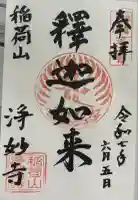 奉拝
令和七年
六月五日
釋迦如来
稲荷山
浄妙寺
稲荷山